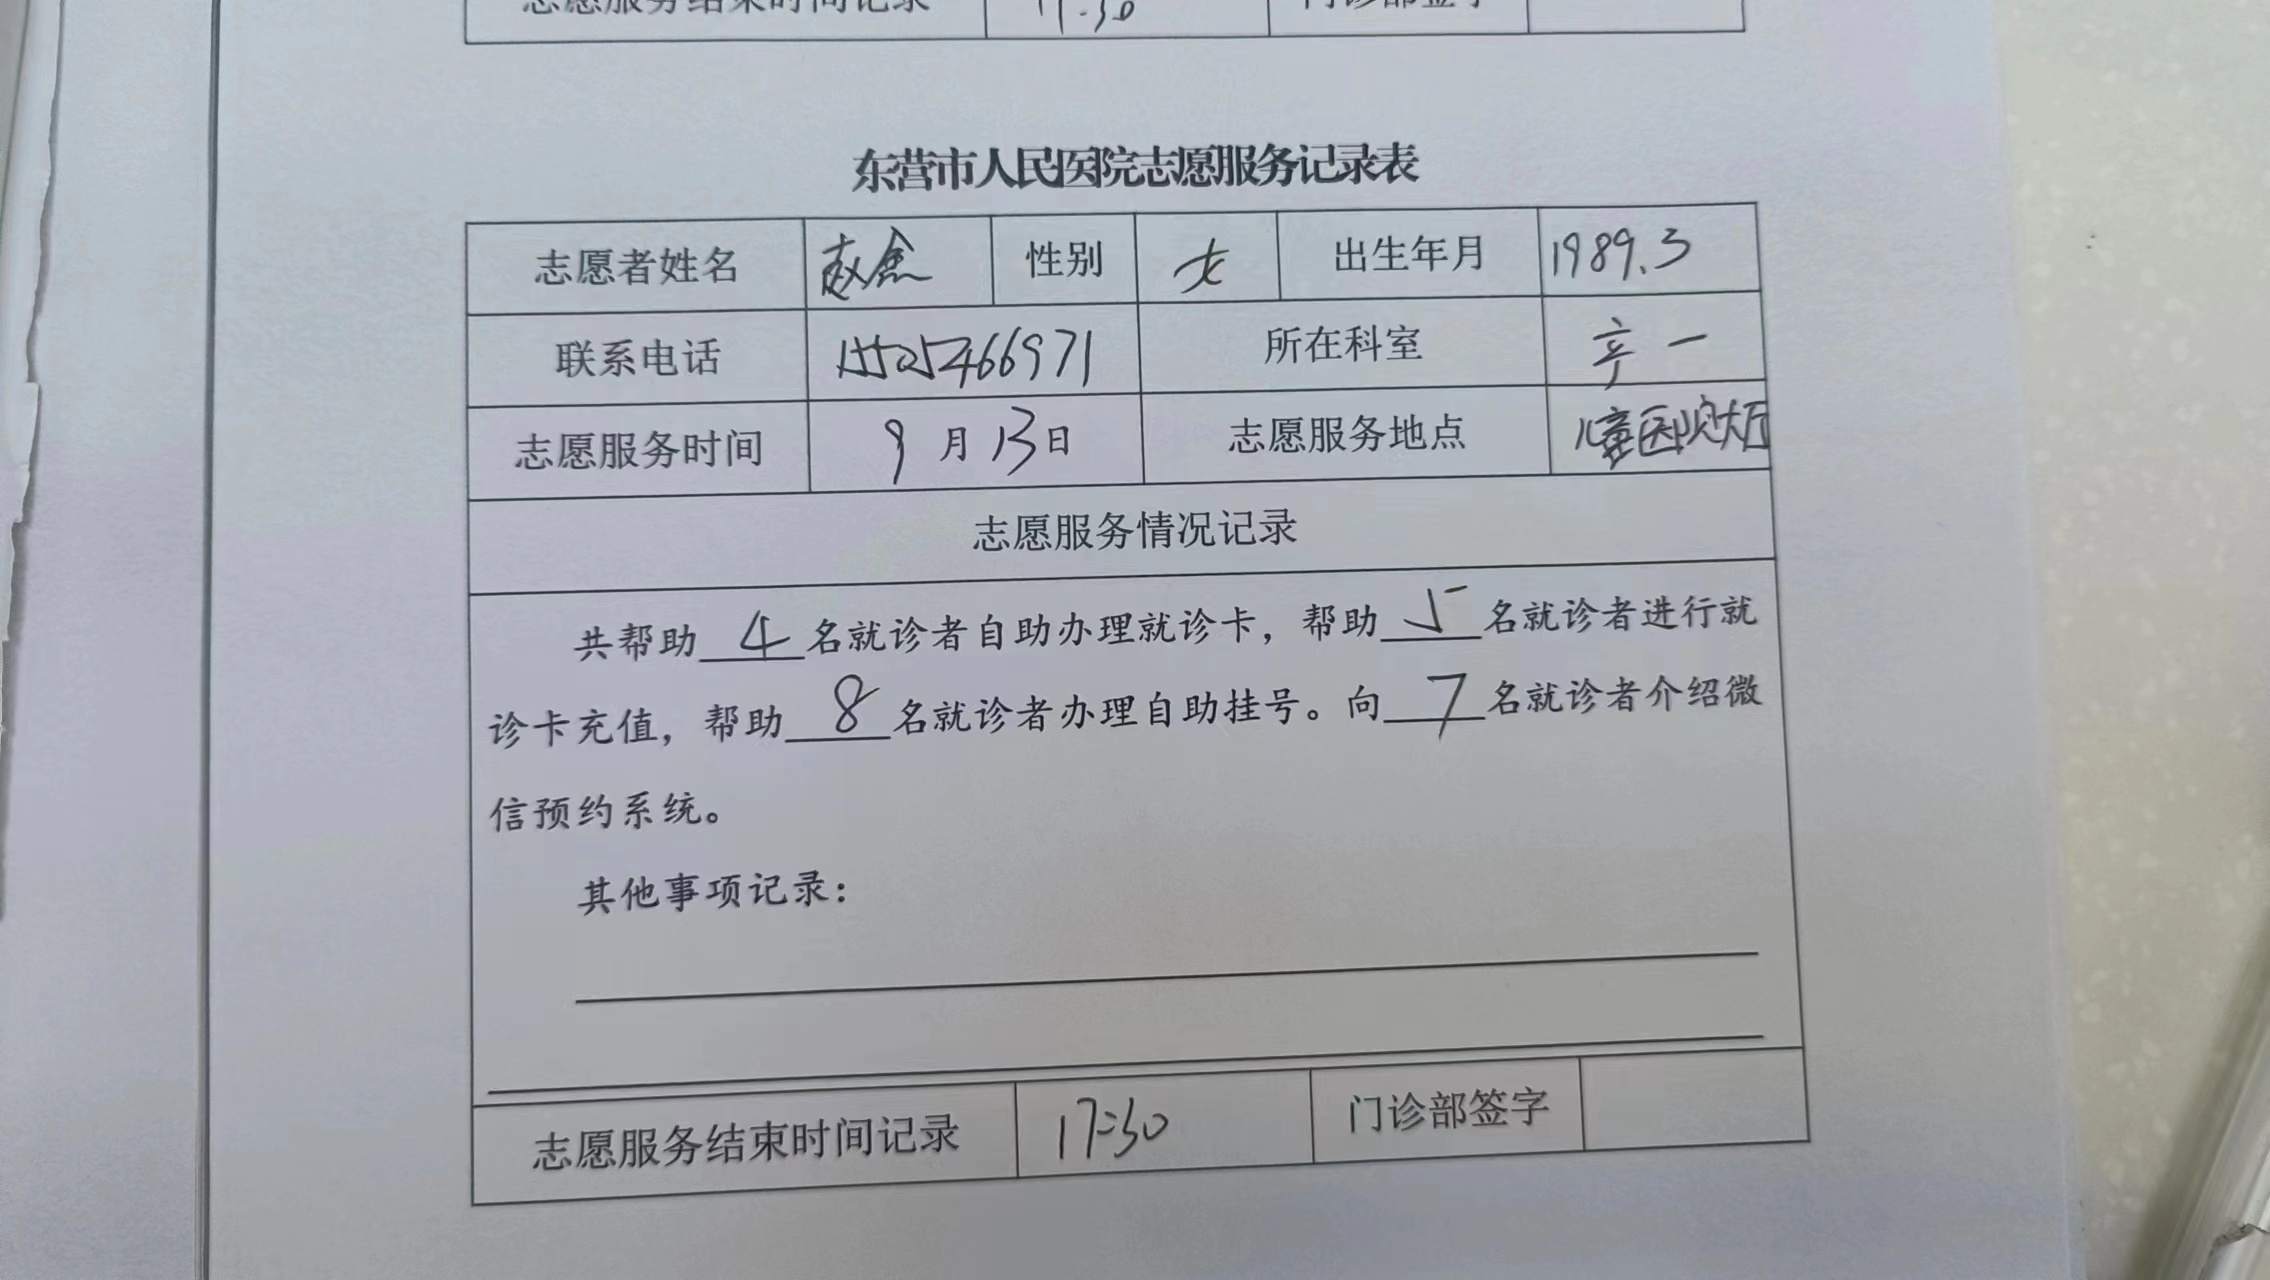 志愿服务结束时间记录 17:30 门诊部签字
东营市人民医院志愿服务记录表
志愿者姓名 赵 性别 女 出生年月 1989.3
联系电话 15505466971 所在科室 一
志愿服务时间 9月13日 志愿服务地点 儿童医院大厅
志愿服务情况记录
共帮助4名就诊者自助办理就诊卡，帮助5名就诊者进行就
诊卡充值，帮助8名就诊者办理自助挂号。向7名就诊者介绍微
信预约系统。
其他事项记录：
志愿服务结束时间记录 17:30 门诊部签字